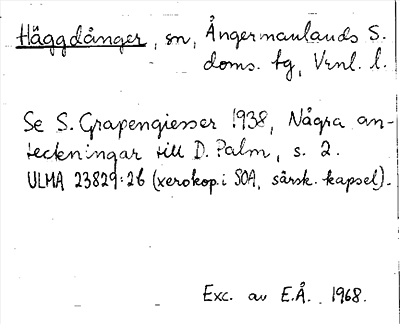 Häggdånger, sn, Ångermanlands S.
doms. tg, Vrnl. l.
Se S. Grapengiesser 1938, Några an-
teckningar till D. Palm, s. 2.
ULMA 23829:26 (xerokop. i SOA, särsk. kapsel).
Exc. av E.Å. 1968.